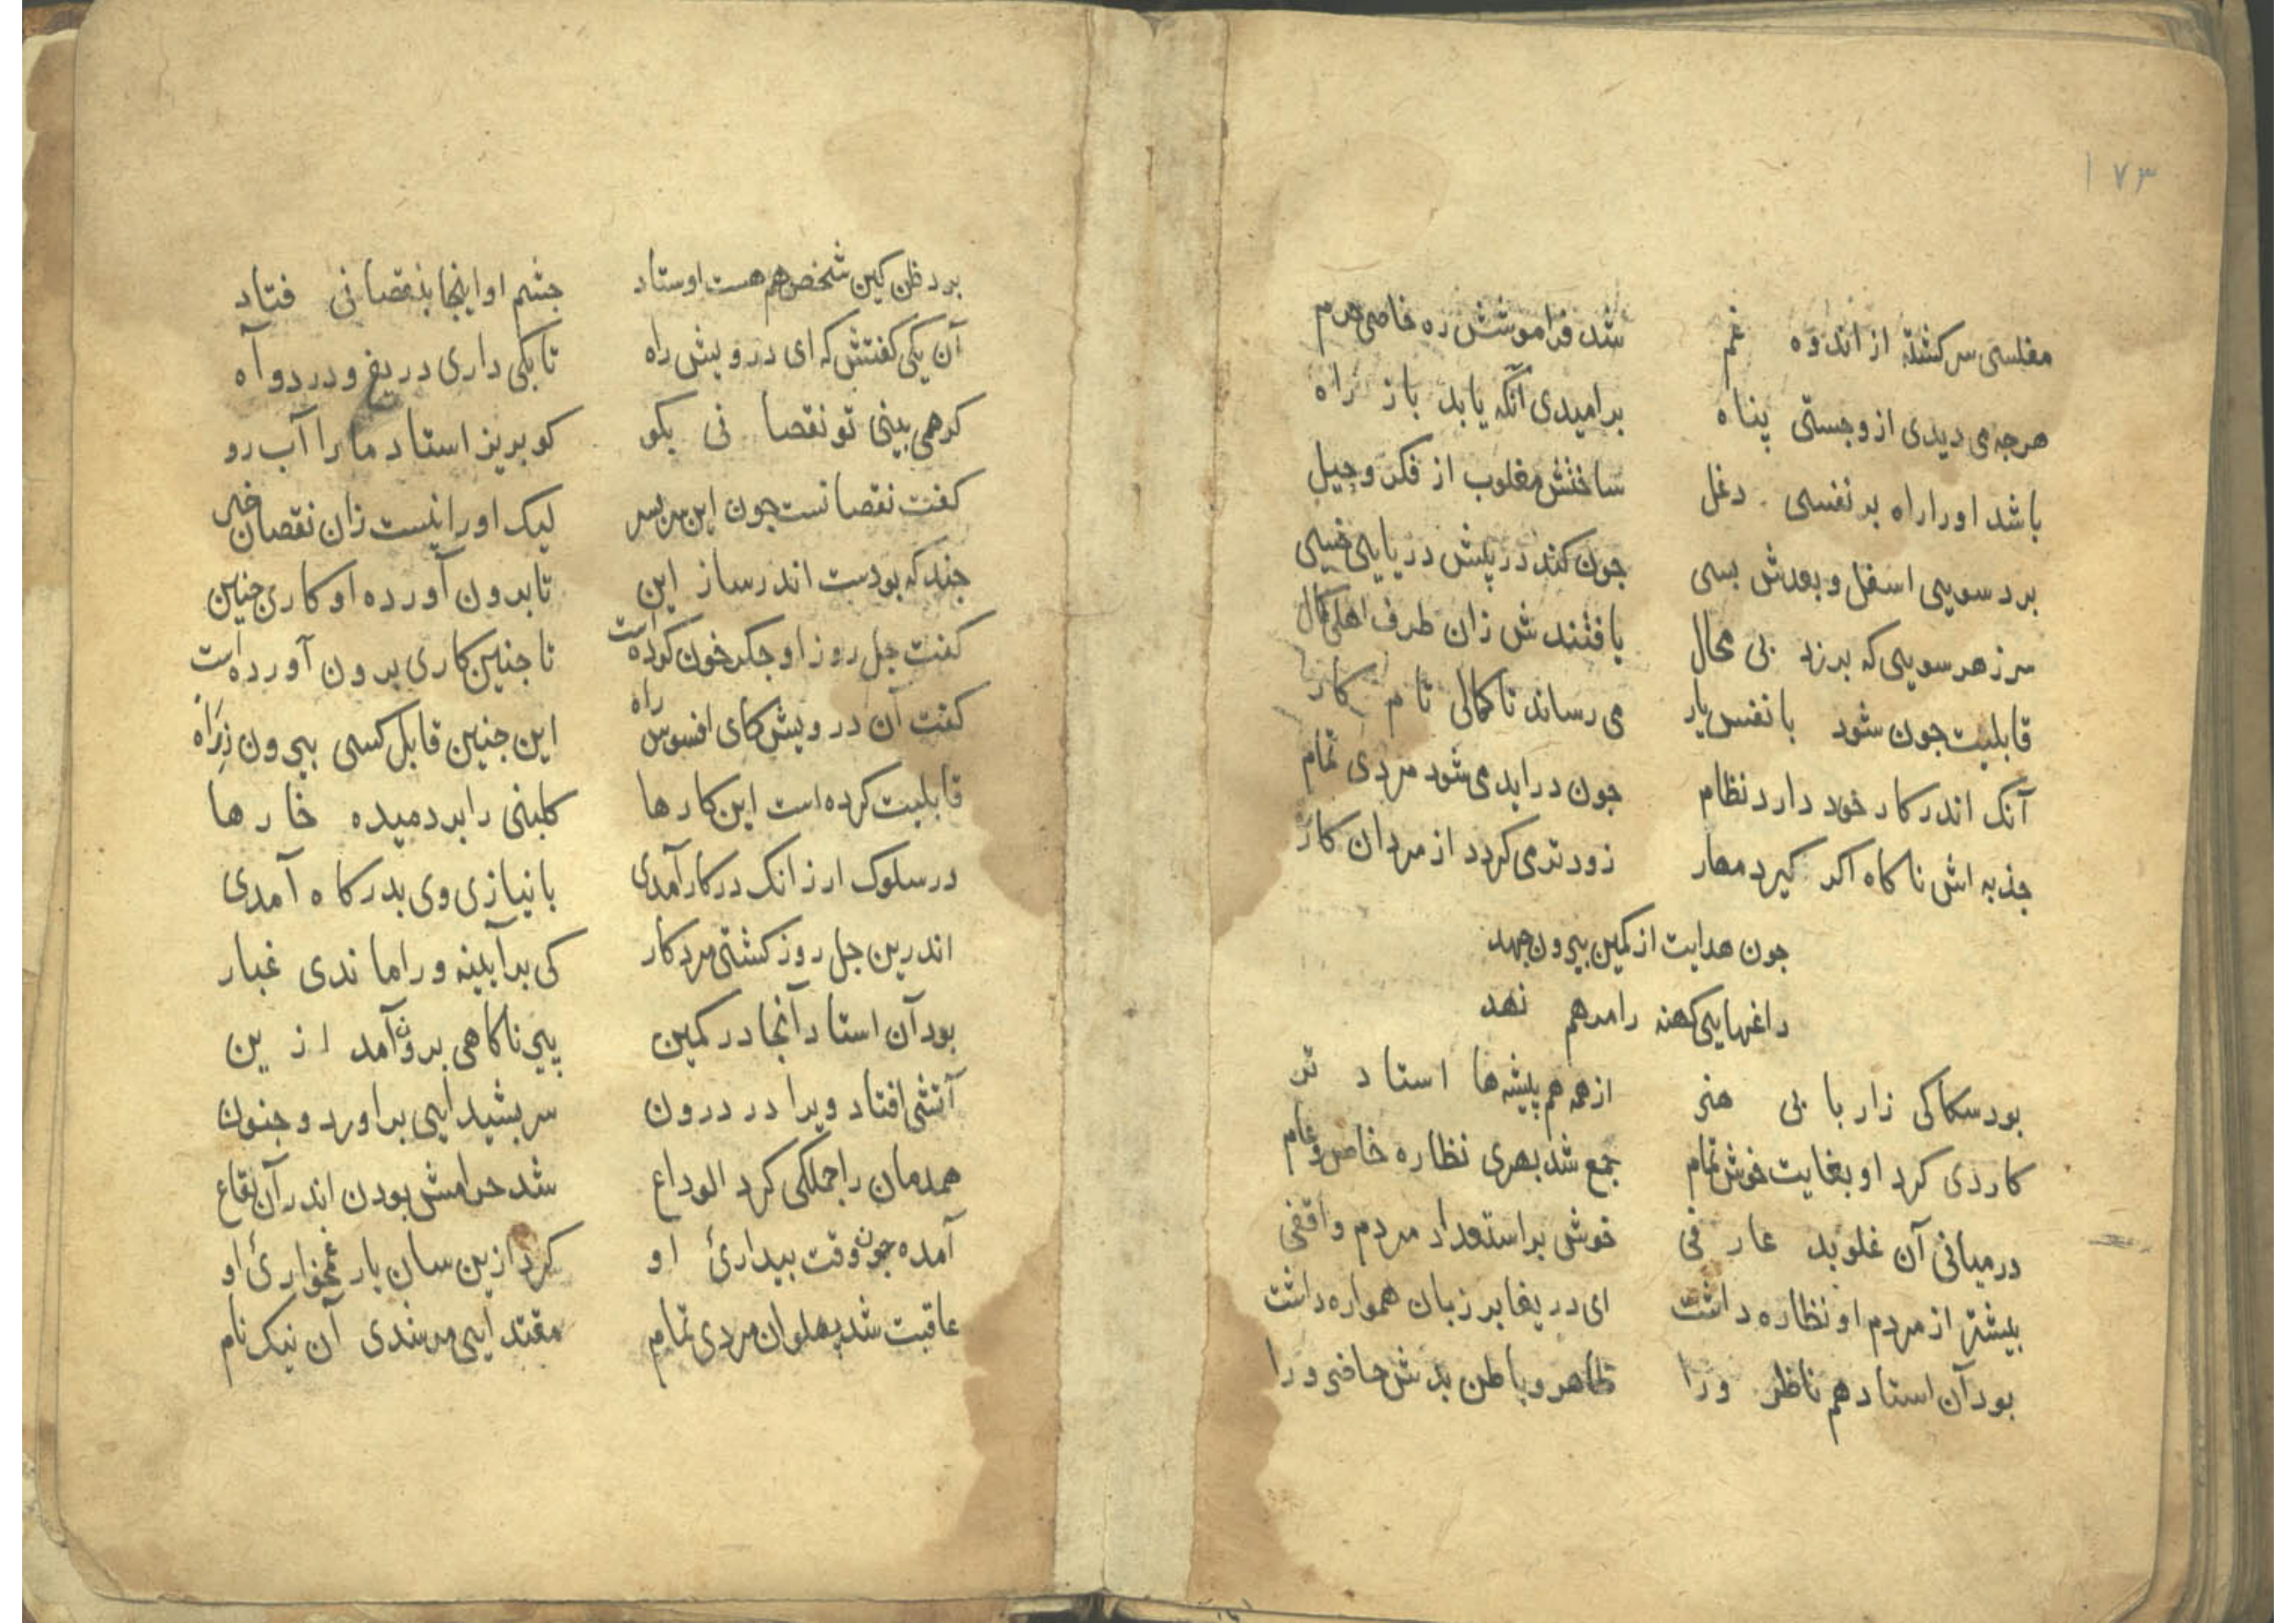 ۱۷۳
مفلسی سرکشتهٔ از اندوه غم شد فراموشش ره خاصی حرم
هرجه می دیدی ازو جستی پناه بر امیدی آنکه یابد باز راه
باشد اورا راه بر نفسی دغل ساختش مغلوب از فکر و حیل
برد سویی اسفل و بعدش بسی جون کند در پیش دریایی خسی
سر ز هر سویی که برزد بی محال یافتندش زان طرف اهلی کمال
قابلیت جون شود با نفس یار می رساند تا کمالی تام کار
آنک اندر کار خود دارد نظام جون در اید می شود مردی تمام
جذبه اش ناکاه اکر کیرد مهار زودتر می کردد از مردان کار
جون هدایت از کمین بیرون جهد
داغهایی کهنه را مرهم نهد
بود سکاکی زار با بی هنر از همه هم پیشه ها استاد تر
کارذی کرد او بغایت خوش تمام جمع شد بهری نظاره خاص و عام
در میانی آن غلو بد عارفی خوش بر استعداد مردم واقفی
بیشتر از مردم او نظاره داشت ای دریغا بر زبان همواره داشت
بود آن استاد هم ناظر ورا ظاهر و باطن بدش حاضر ورا
برد ظن کین شخص هم هست اوستاد جشم او اینجا بنقصانی فتاد
آن یکی کفتش که ای درویش راه تا بکی داری دریغ و درد و آه
کر همی بینی تو نقصانی بکو کو بریز استاد ما را آب رو
کفت نقصانست جون این سر بسر لیک او را نیست زان نقصان خبر
جند که بودست اندر ساز این تا برون آورده او کاری جنین
کفت جل روز او جکر خون کرده است تا جنین کاری برون آورده است
کفت آن درویش کای افسوس راه این جنین قابل کسی بیرون ز راه
قابلیت کرده است این کارها کلبنی را بردمیده خارها
در سلوک ار زانک در کار آمدی با نیازی وی بدرکاه آمدی
اندرین جل روز کشتی مرد کار کی بر آیینه ورا ماندی غبار
بود آن استاد آنجا در کمین بی ناکاهی برون آمد ازین
آتشی افتاد ویرا در درون سر بشیدایی براورد و جنون
همدمان را جملکی کرد الوداع شد حرامش بودن اندر آن بقاع
آمده جون وقت بیداریٔ او کرد ازین سان یار غمخواریٔ او
عاقبت شد پهلوان مردی تمام مقتدایی مرشدی آن نیک نام